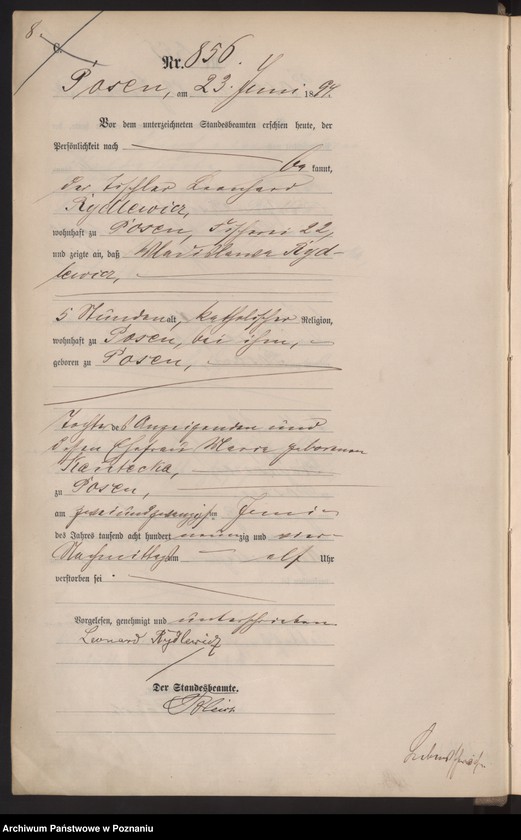 8
C.
Nr. 856.
Posen, am 23. Juni 1894.
Vor dem unterzeichneten Standesbeamten erschien heute, der
Persönlichkeit nach
be kannt,
der Tischler Leonhard
Rydlewicz,
wohnhaft zu Posen, Fischerei 22,
und zeigte an, daß Ryd-
lewicz,
5 Stunden alt, katholischer Religion,
wohnhaft zu Posen, bei ihm,
geboren zu Posen,
Tochter des Anzeigenden und
dessen Ehefrau Marie geborenen
zu Posen,
am zweiundzwanzigsten Juni
des Jahres tausend acht hundert neunzig und vier
Nachmittags um elf Uhr
verstorben sei.
Vorgelesen, genehmigt und unterschrieben
Leonard Rydlewicz
Der Standesbeamte.
Archiwum Państwowe w Poznaniu